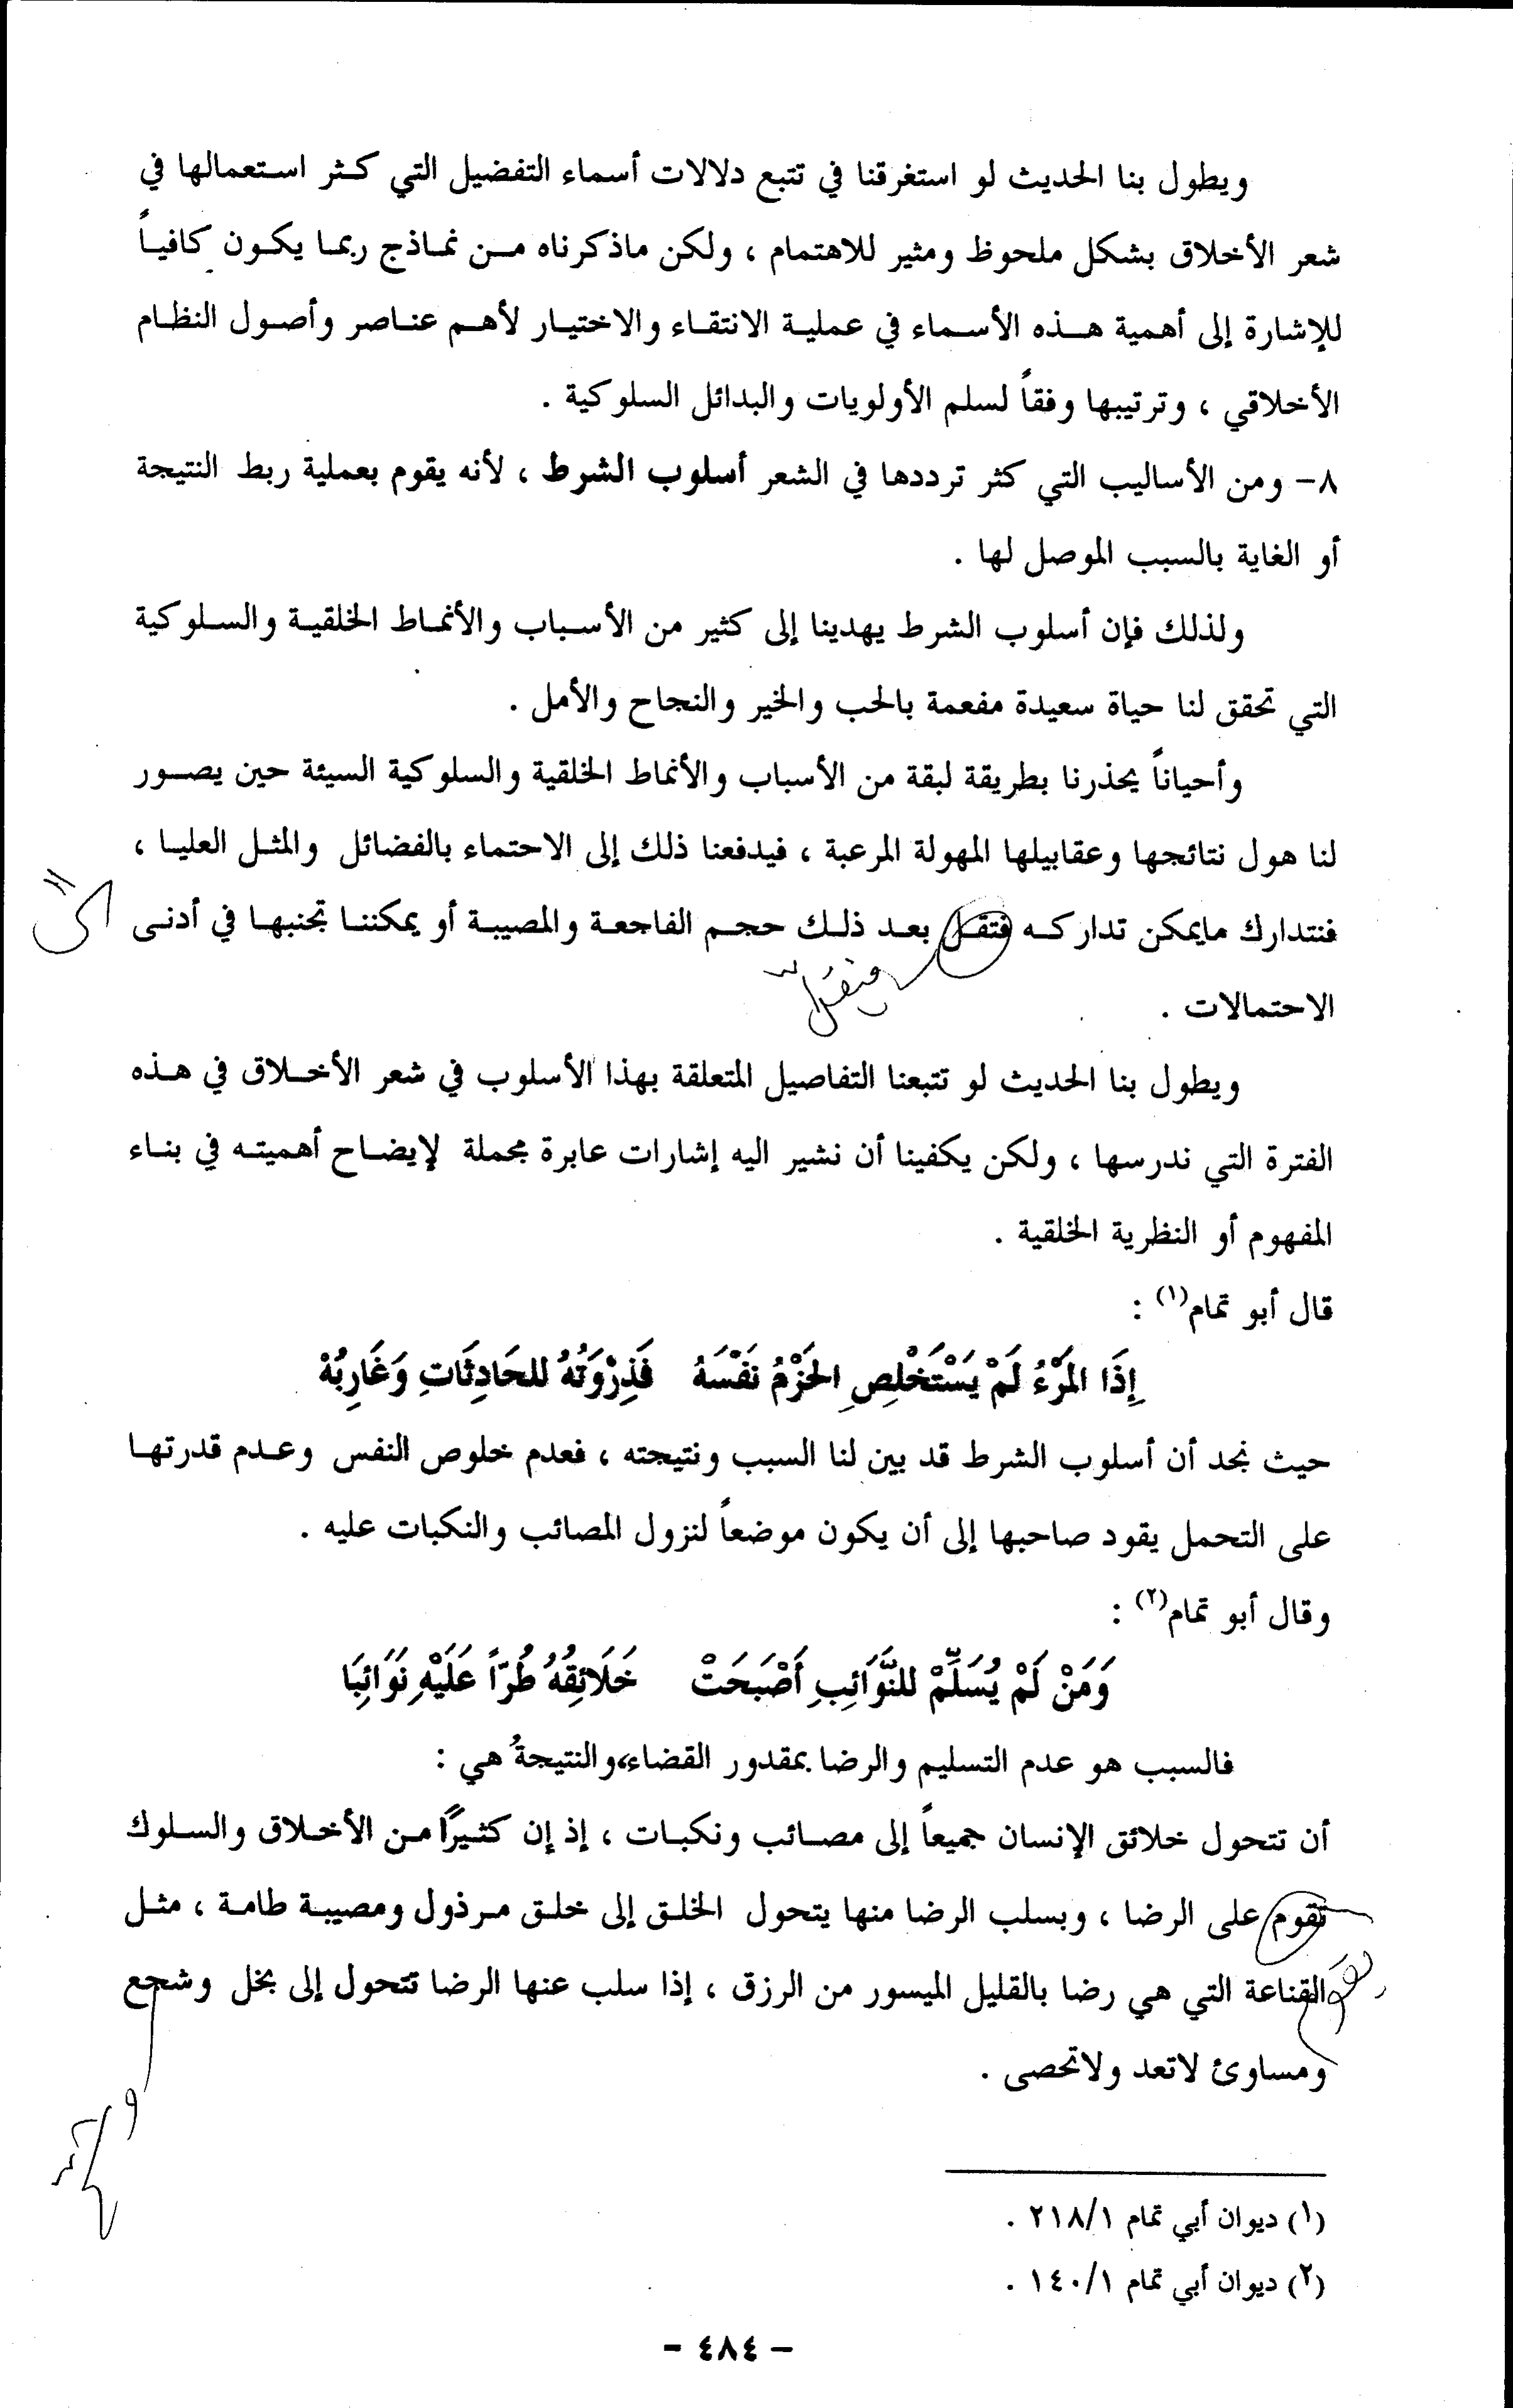 ويطول بنا الحديث لو استغرقنا في تتبع دلالات أسماء التفضيل التي كثر استعمالها في
شعر الأخلاق بشكل ملحوظ ومثير للاهتمام ، ولكن ماذكرناه من نماذج ربما يكون كافياً
للإشارة إلى أهمية هذه الأسماء في عملية الانتقاء والاختيار لأهم عناصر وأصول النظام
الأخلاقي ، وترتيبها وفقاً لسلم الأولويات والبدائل السلوكية .
٨- ومن الأساليب التي كثر ترددها في الشعر أسلوب الشرط ، لأنه يقوم بعملية ربط النتيجة
أو الغاية بالسبب الموصل لها .
ولذلك فإن أسلوب الشرط يهدينا إلى كثير من الأسباب والأنماط الخلقية والسلوكية
التي تحقق لنا حياة سعيدة مفعمة بالحب والخير والنجاح والأمل .
وأحياناً يحذرنا بطريقة لبقة من الأسباب والأنماط الخلقية والسلوكية السيئة حين يصور
لنا هول نتائجها وعقابيلها المهولة المرعبة ، فيدفعنا ذلك إلى الاحتماء بالفضائل والمثل العليا ،
فنتدارك مايمكن تداركه فتقل بعد ذلك حجم الفاجعة والمصيبة أو يمكننا تجنبها في أدنى
فيقلّ
الاحتمالات .
ويطول بنا الحديث لو تتبعنا التفاصيل المتعلقة بهذا الأسلوب في شعر الأخلاق في هذه
الفترة التي ندرسها ، ولكن يكفينا أن نشير اليه إشارات عابرة مجملة لإيضاح أهميته في بناء
المفهوم أو النظرية الخلقية .
قال أبو تمام(١) :
إِذَا المَرْءُ لَمْ يَسْتَخْلِصِ الحَزْمُ نَفْسَهُ فَذِرْوَتُهُ للحَادِثَاتِ وَغَارِبُهْ
حيث نجد أن أسلوب الشرط قد بين لنا السبب ونتيجته ، فعدم خلوص النفس وعدم قدرتها
على التحمل يقود صاحبها إلى أن يكون موضعاً لنزول المصائب والنكبات عليه .
وقال أبو تمام(٢) :
وَمَنْ لَمْ يُسَلِّمْ للنَّوَائِبِ أَصْبَحَتْ خَلَائِقُهُ طُرّاً عَلَيْهِ نَوَائِبَا
فالسبب هو عدم التسليم والرضا بمقدور القضاء،والنتيجةُ هي :
أن تتحول خلائق الإنسان جميعاً إلى مصائب ونكبات ، إذ إن كثيرًا من الأخلاق والسلوك
تقوم على الرضا ، وبسلب الرضا منها يتحول الخلق إلى خلق مرذول ومصيبة طامة ، مثل
يقوم
القناعة التي هي رضا بالقليل الميسور من الرزق ، إذا سلب عنها الرضا تتحول إلى بخل وشجع
ومساوئ لاتعد ولاتحصى .
(١) ديوان أبي تمام ٢١٨/١ .
(٢) ديوان أبي تمام ١٤٠/١ .
- ٤٨٤ -